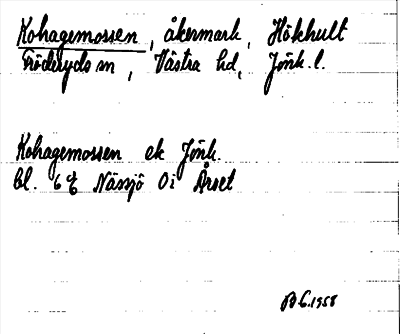 Kohagemossen, åkermark, Hökhult
Fröderyds sn, Västra hd, Jönk. l.
Kohagemossen ek Jönk.
bl. 6 Nässjö Oi Årset
1958